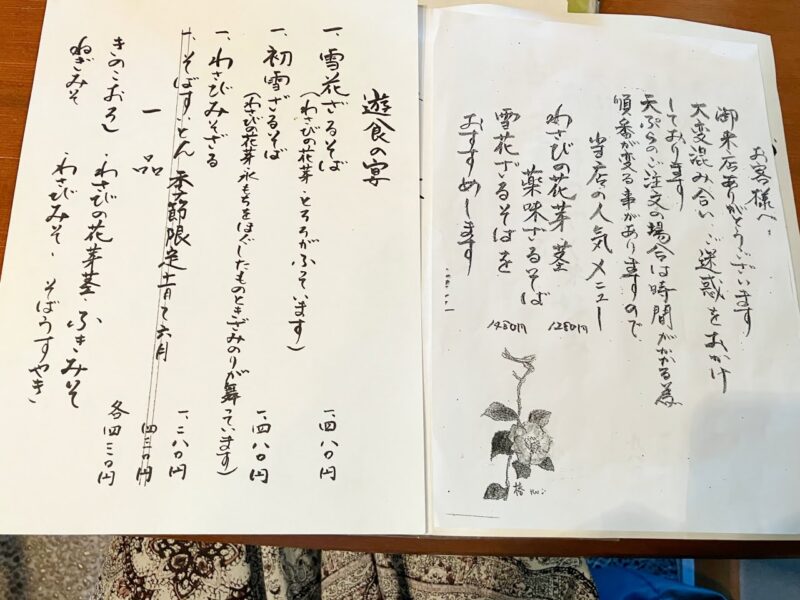 お客様へ
御来店ありがとうございます
大変混み合い、ご迷惑をおかけ
しております
天ぷらのご注文の場合は時間がかかる為
順番が変る事がありますので
当店の人気メニュー
わさびの花芽茎
薬味ざるそば 1280円
雪花ざるそばを 1480円
おすすめします
椿
遊食の宴
一、雪花ざるそば 一、四八〇円
(わさびの花芽、とろろがふっています)
一、初雪ざるそば 一、四八〇円
(わさびの花芽、氷もちをほぐしたものときざみのりが舞っています)
一、わさびみそざる 一、二八〇円
一、そばすいとん 季節限定十月〜六月 四三〇円
一品 各四三〇円
きのこおろし わさびの花芽茎、ふきみそ
ねぎみそ わさびみそ、そばうすやき